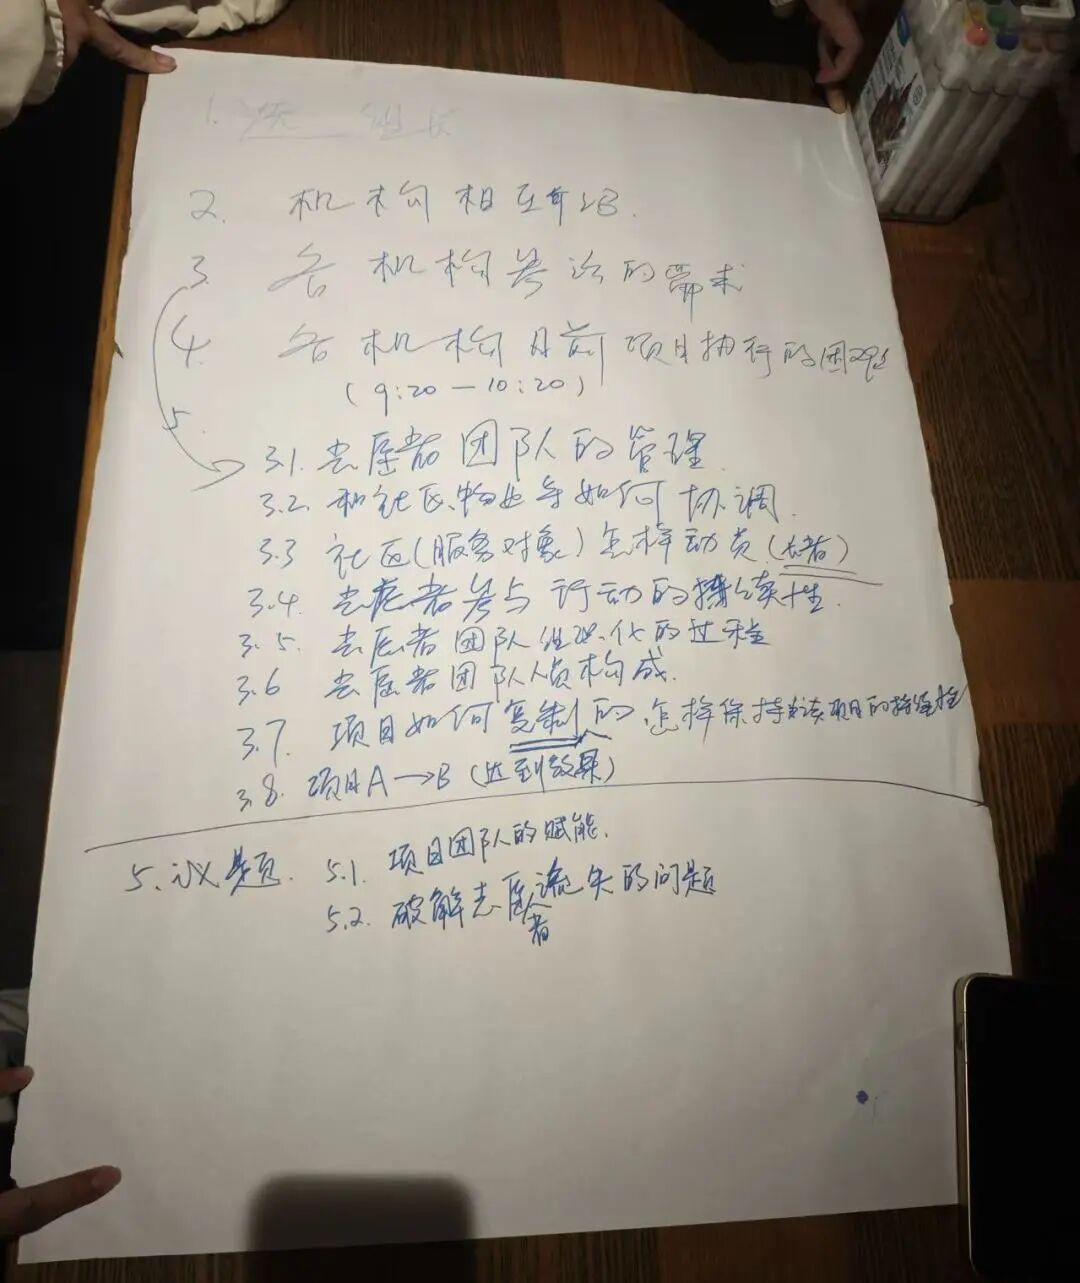 1. 选 组长
2. 机构相互介绍.
3. 各机构参访的需求
4. 各机构目前项目执行的困难
(9:20—10:20)
5.
3.1. 志愿者团队的管理.
3.2. 和社区、物业等如何协调.
3.3 社区(服务对象)怎样动员(长者)
3.4. 志愿者参与行动的持续性.
3.5. 志愿者团队组织化的过程
3.6 志愿者团队人员构成.
3.7. 项目如何复制的.怎样保持该项目的持续性
3.8. 项目A→B(达到效果)
5、议题. 5.1. 项目团队的赋能.
5.2. 破解志愿者流失的问题